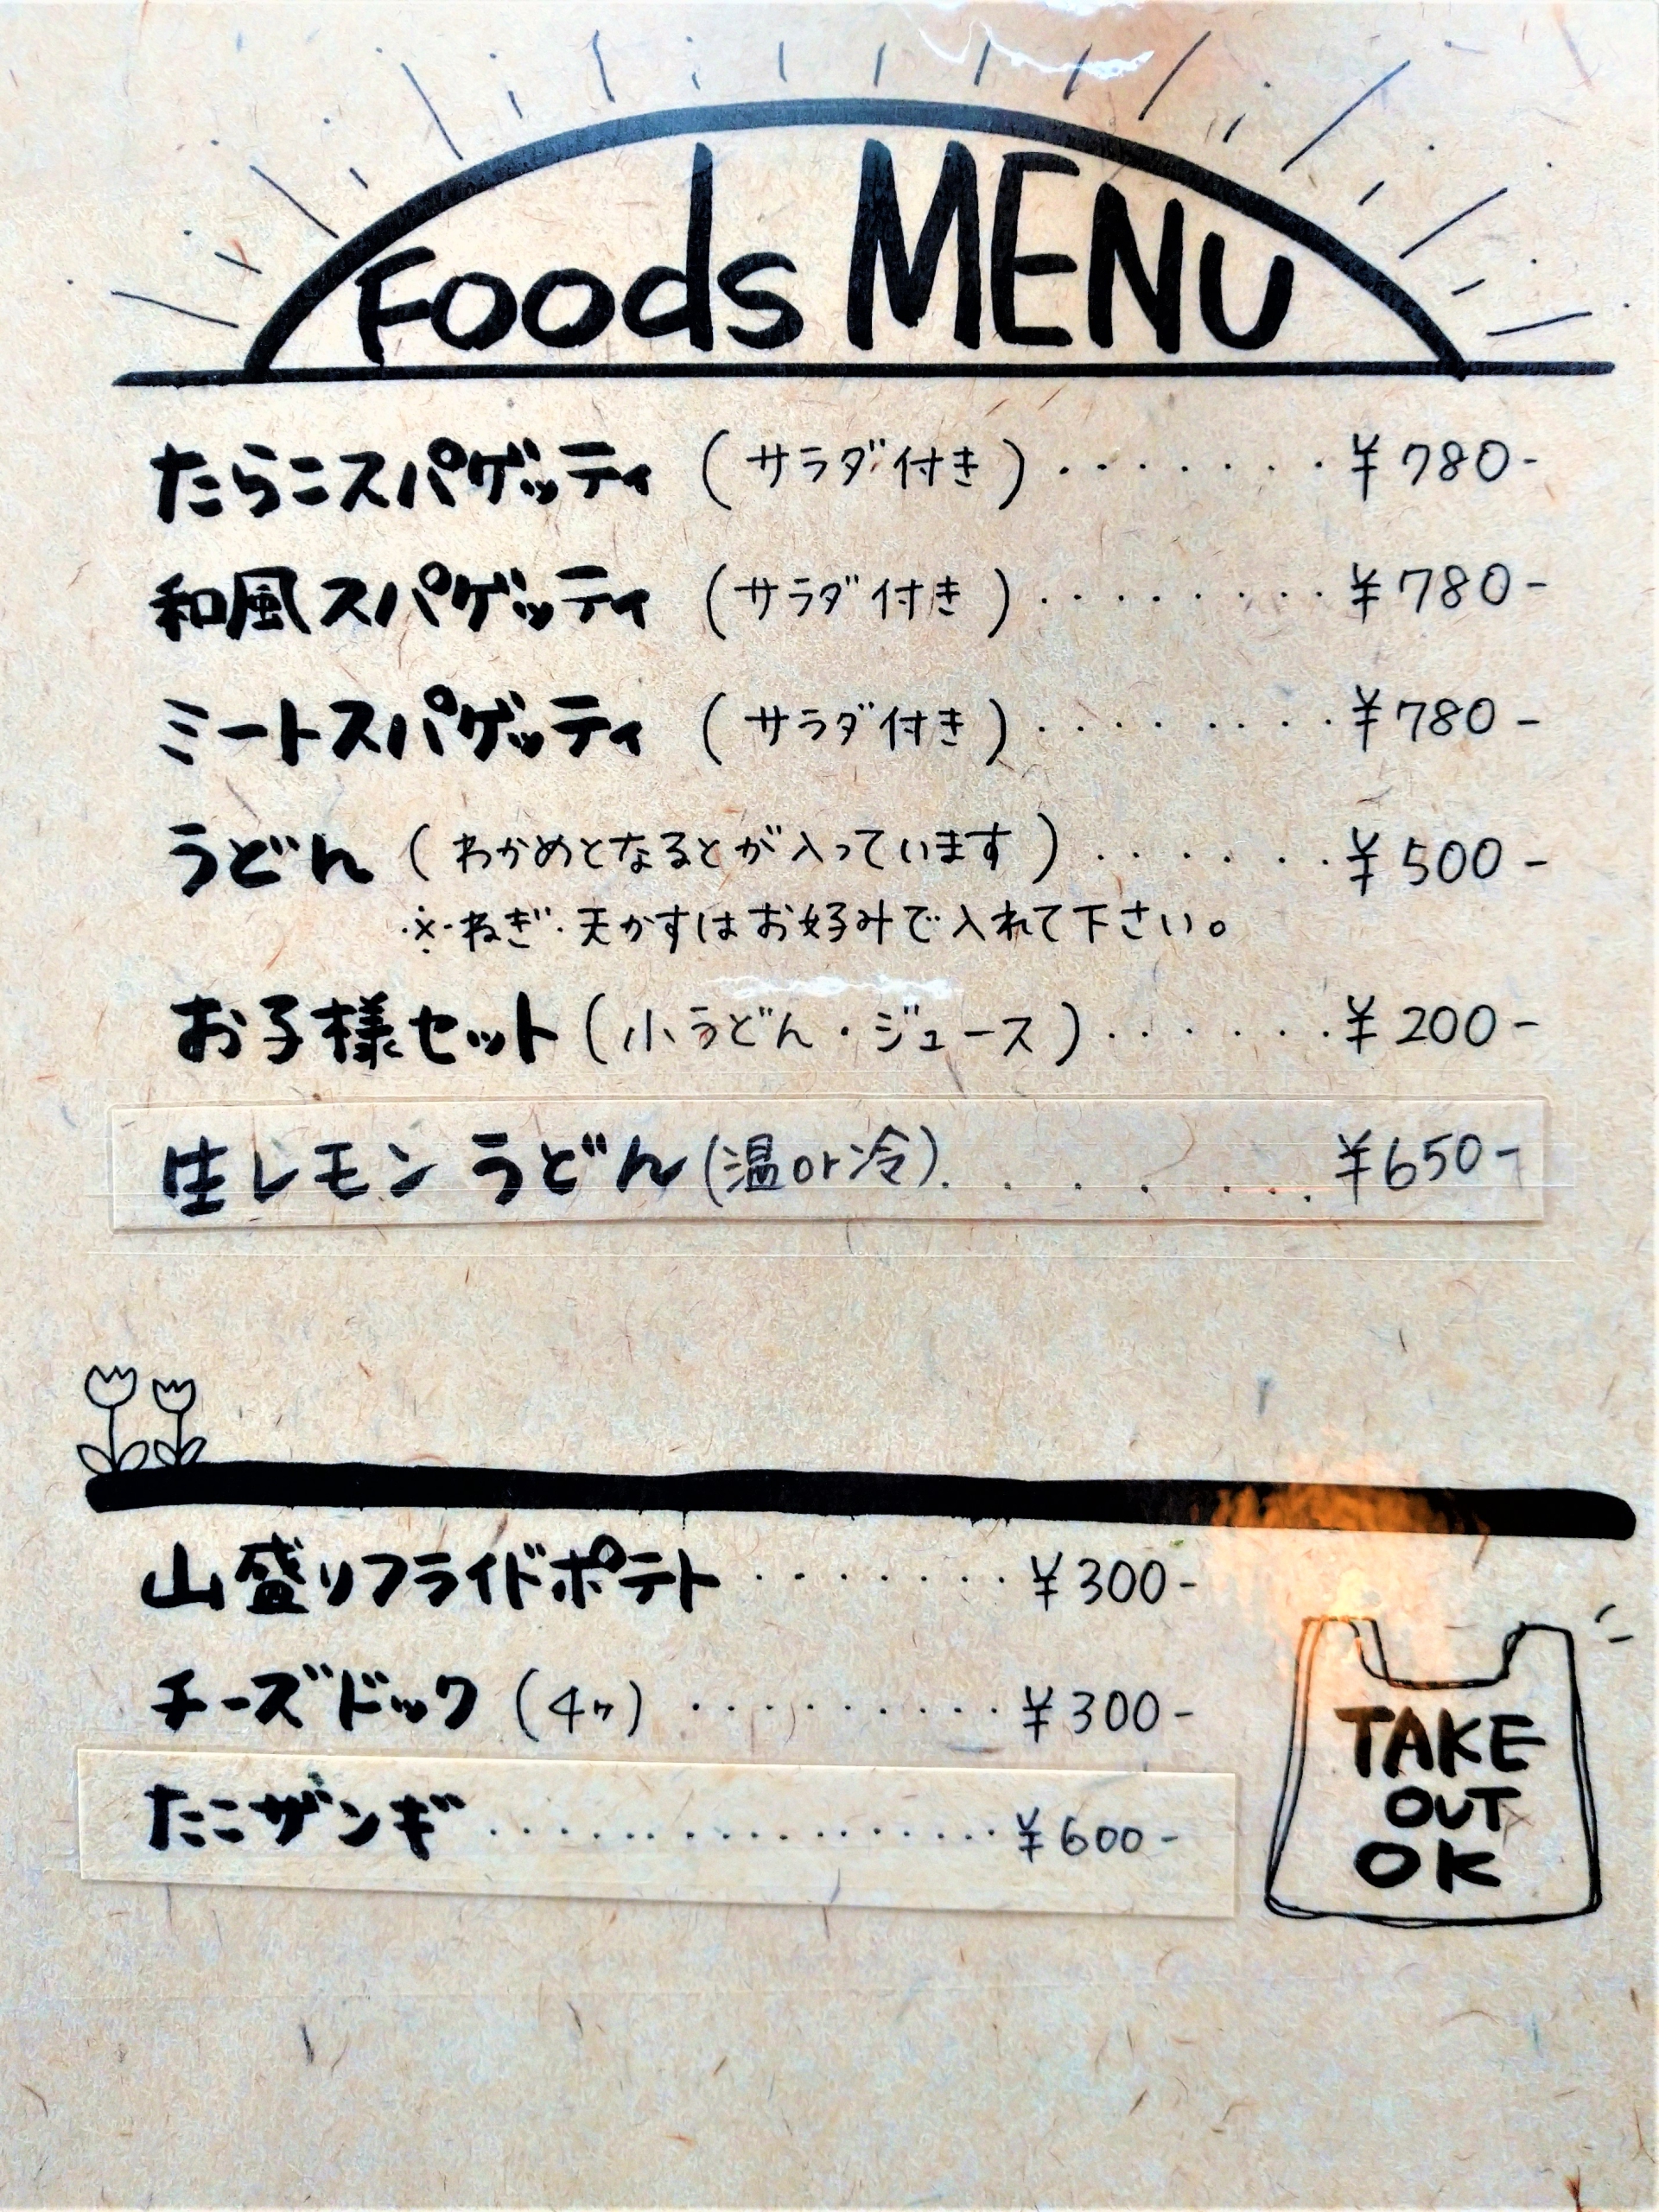 Foods MENU
たらこスパゲッティ (サラダ付き)・・・・・・・¥780-
和風スパゲッティ (サラダ付き)・・・・・・・・¥780-
ミートスパゲッティ (サラダ付き)・・・・・・・・¥780-
うどん (わかめとなるとが入っています)・・・・・・¥500-
※ねぎ・天かすはお好みで入れて下さい。
お子様セット (小うどん・ジュース)・・・・・・¥200-
生レモンうどん(温or冷)・・・・・・・¥650-
山盛りフライドポテト・・・・・・・¥300-
チーズドック (4ヶ)・・・・・・・・・¥300-
たこザンギ・・・・・・・・・・・・・・・・¥600-
TAKE
OUT
OK